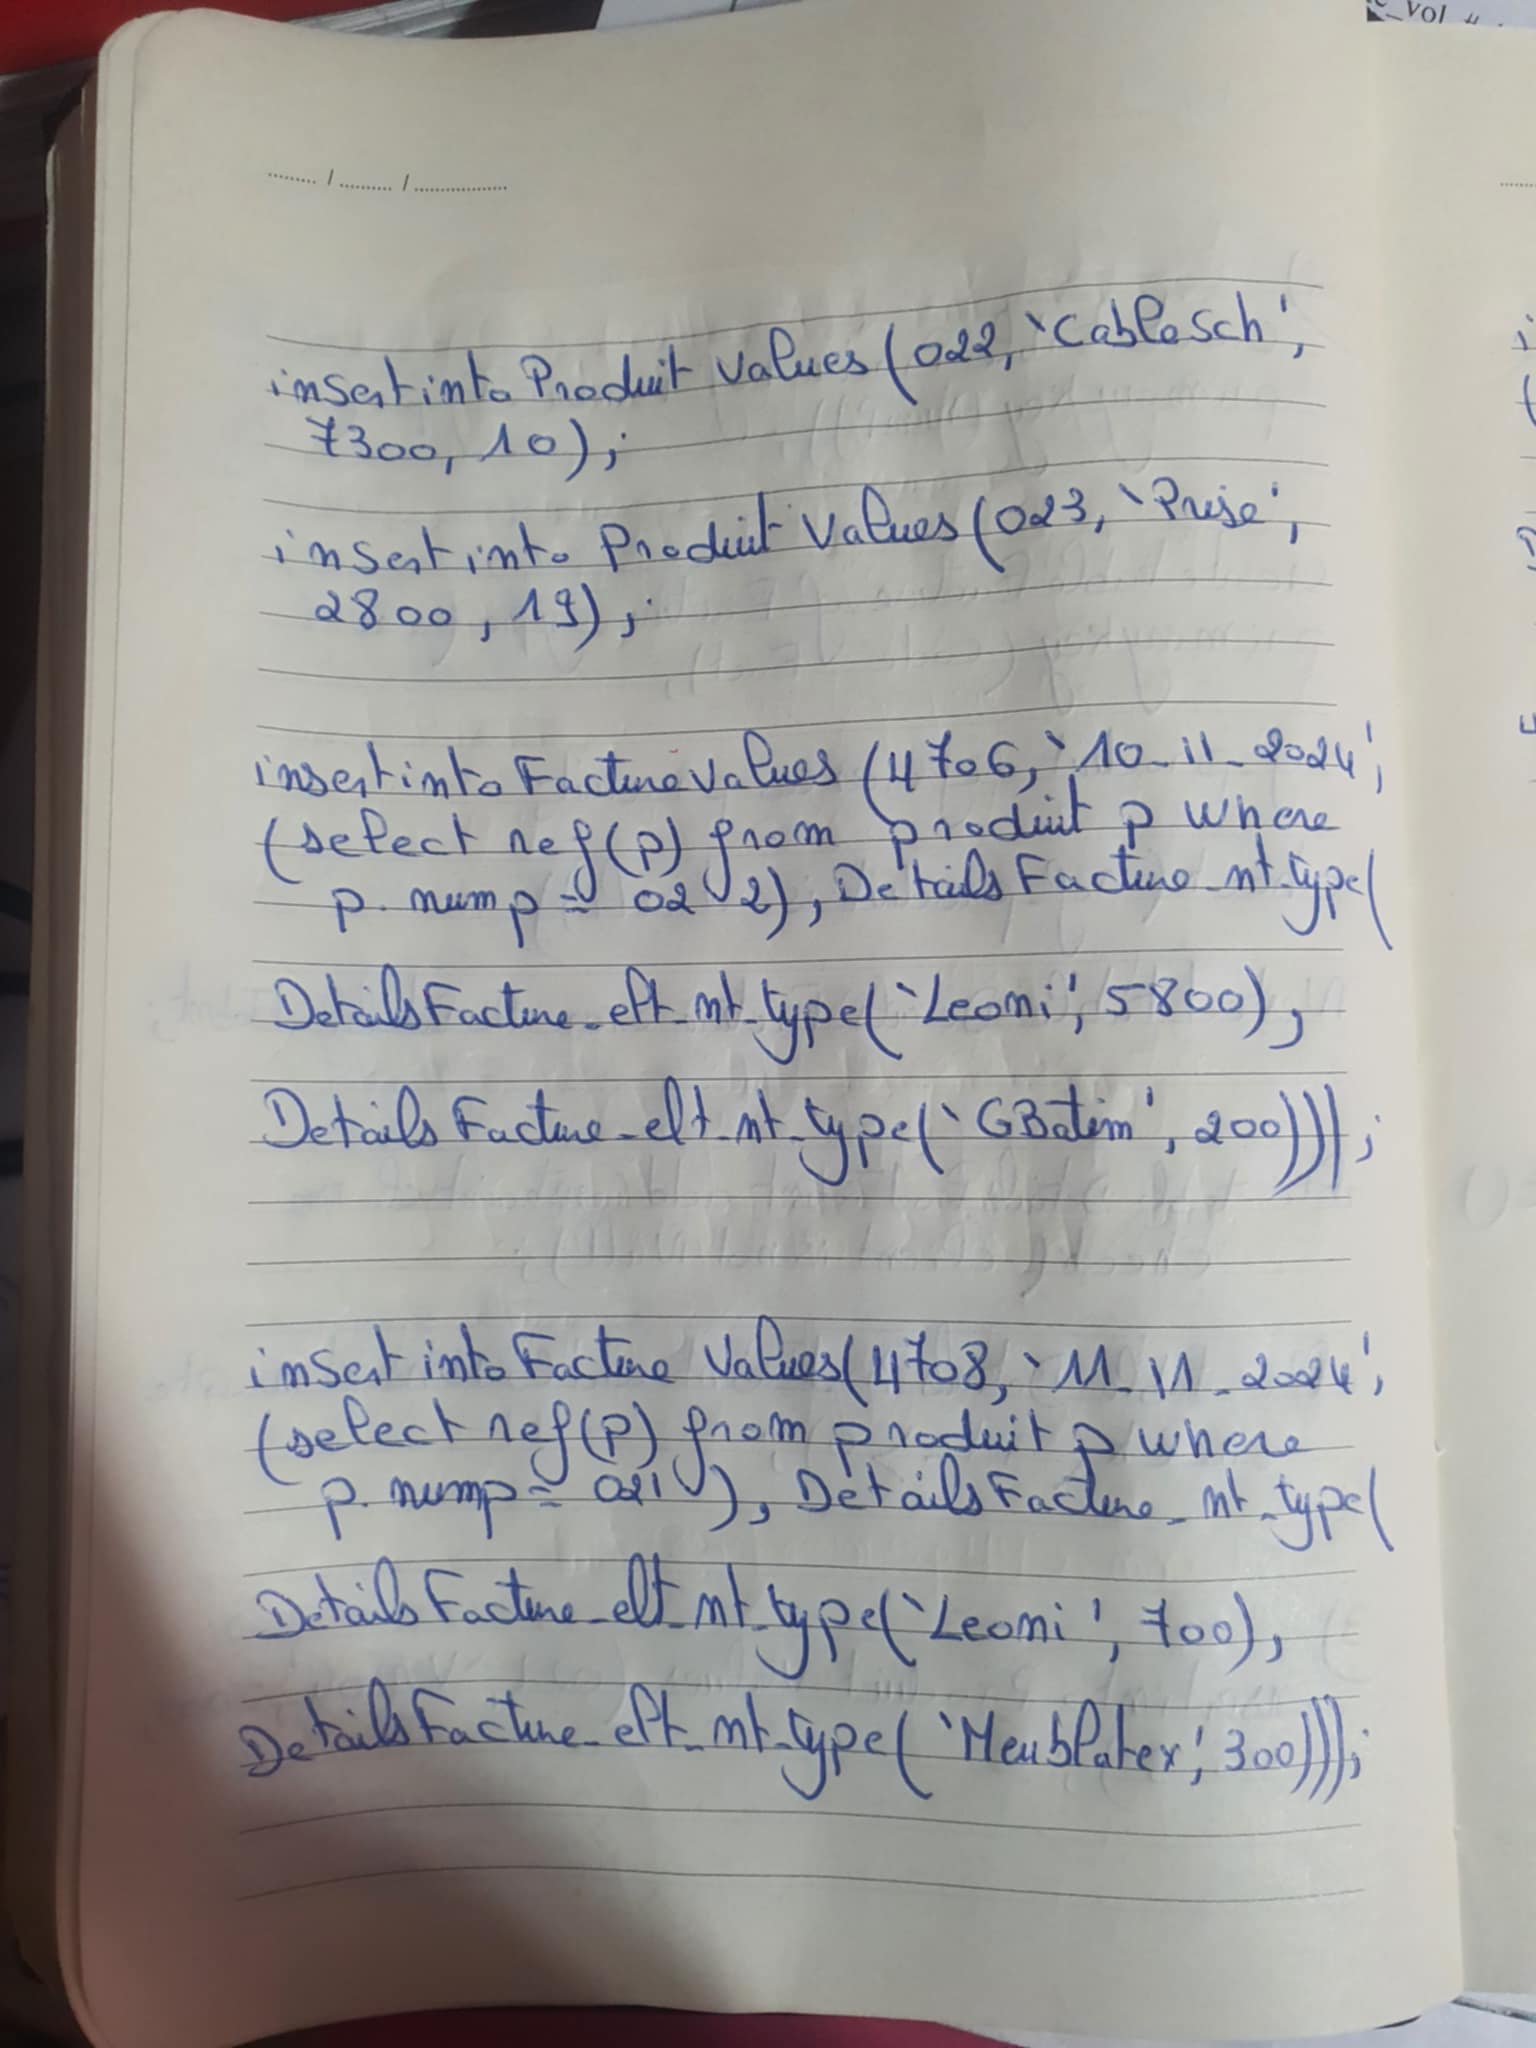 c_Vol
...... / ...... / ......
insert into Produit values (022, 'CableSch',
7300, 10);
insert into Produit values (023, 'Prise',
2800, 19);
insert into Facture values (4706, '10-11-2024',
(select ref(p) from produit p where
p.nump = 022), DetailsFacture_nt_type(
DetailsFacture_elt_nt_type('Leoni', 5800),
DetailsFacture_elt_nt_type('GBatim', 200)));
insert into Facture values (4708, '11-11-2024',
(select ref(p) from produit p where
p.nump = 021), DetailsFacture_nt_type(
DetailsFacture_elt_nt_type('Leoni', 700),
DetailsFacture_elt_nt_type('Meublatex', 300)));